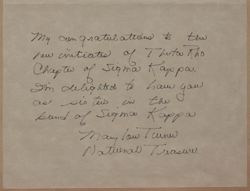 My congratulations to the
new initiates of Theta Rho
Chapter of Sigma Kappa.
I'm delighted to have you
as sisters in the
bond of Sigma Kappa
Mary Lou Turner
National Treasure